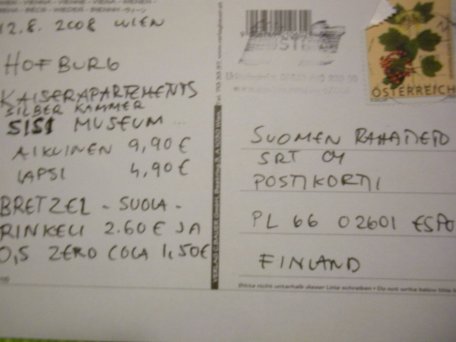 12.8.2008 WIEN
HOFBURG
KAISERAPARTEMENTS
SILBER KAMMER
SISI MUSEUM
AIKUINEN 9,90€
LAPSI 4,90€
BRETZEL - SUOLA-
RINKELI 2.60€ JA
0,5 ZERO COCA 1,50€
ÖSTERREICH
SUOMEN RAHATIETO
SRT OY
POSTIKORTTI
PL 66 02601 ESPO
FINLAND
Bitte nicht unterhalb dieser Linie schreiben • Do not write below this l